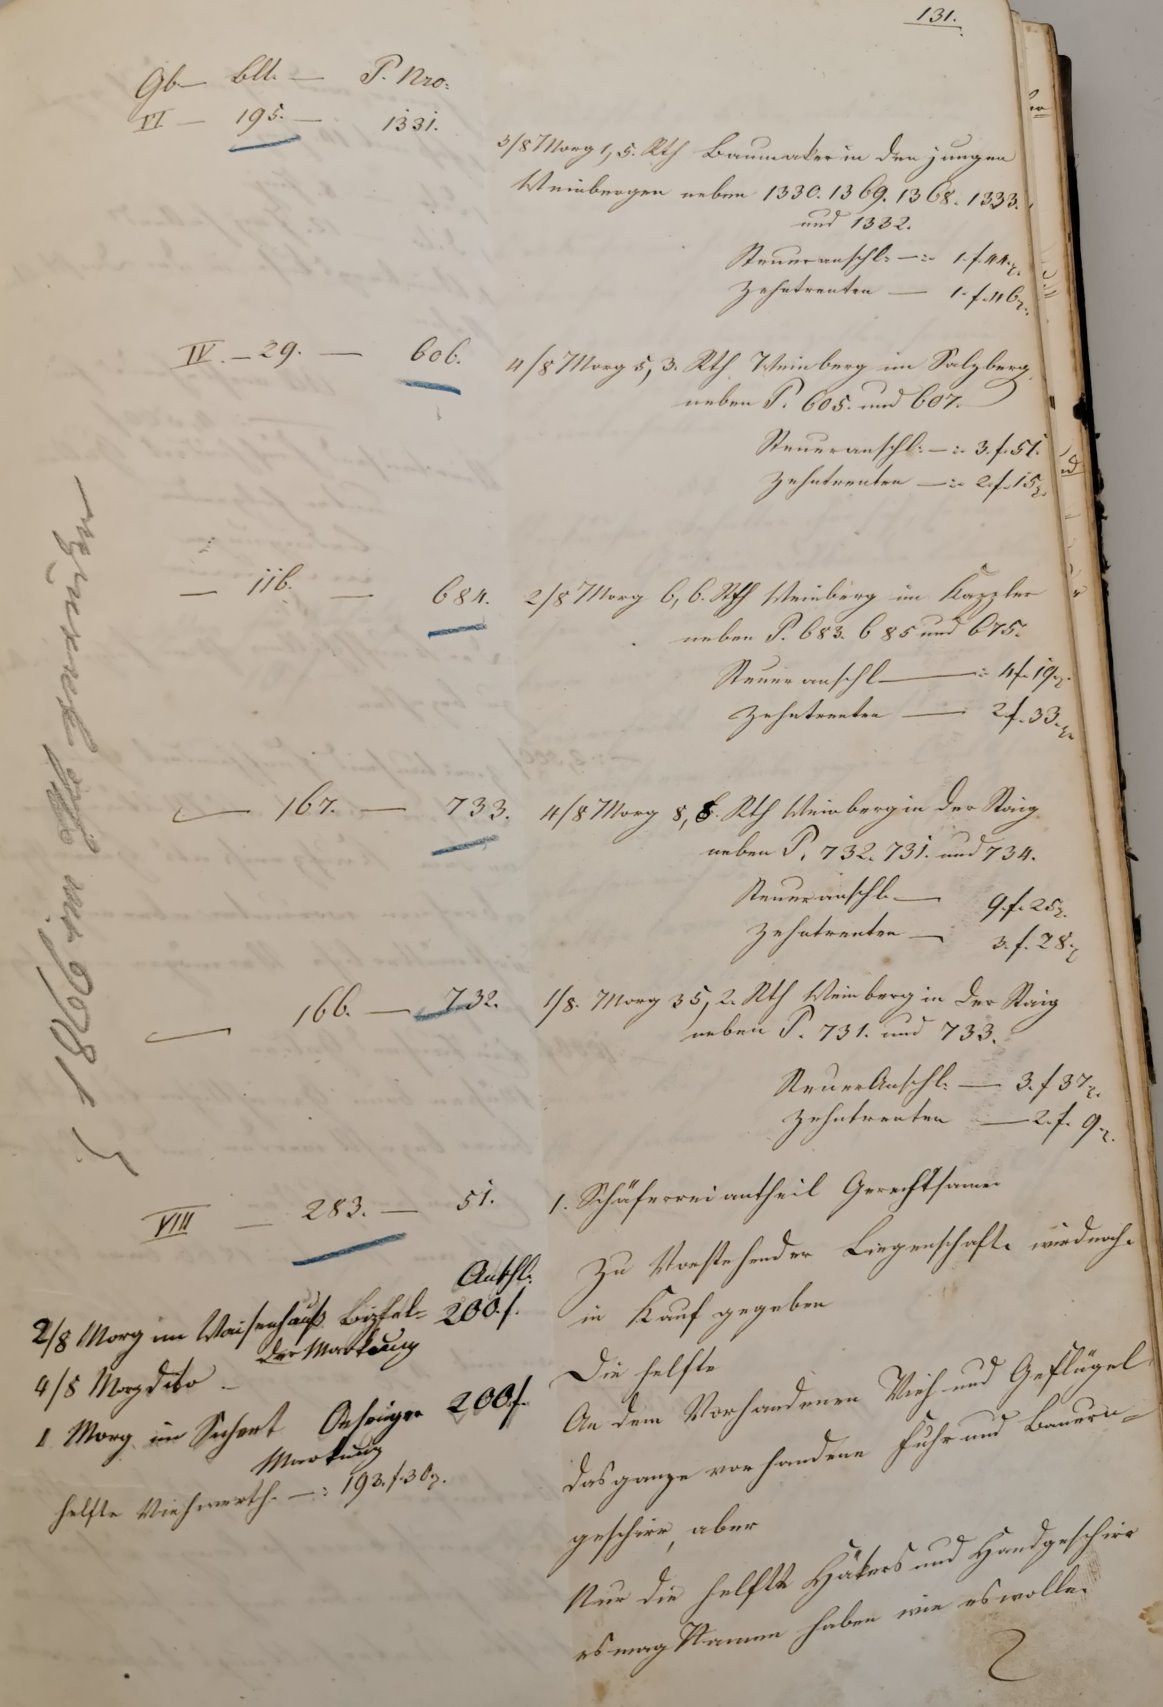 131.
Gb — Bll. — P. Nro:
VI — 195. — 1331.
3/8 Morg 1,5. Rth Baumaker in den jungen
Weinbergen neben 1330. 1369. 1368. 1333.
und 1332.
Steueranschl: —:- 1.f.44x.
Zehntrenten — 1.f.46x.
IV. — 29. — 606.
4/8 Morg 5,3. Rth Weinberg im Salzberg
neben P. 605. und 607.
Steueranschl: —:- 3.f.51.
Zehntrenten —:- 2.f.15x.
— 116. — 684.
2/8 Morg 6,6. Rth Weinberg im Kappler
neben P. 683. 685 und 675.
Steueranschl — : 4f.19x.
Zehntrenten — 2.f.33.x.
— 167. — 733.
4/8 Morg 8,8. Rth Weinberg in der Staig
neben P. 732. 731. und 734.
Steueranschl. — 9.f.25x.
Zehntrenten — 3.f.28.x
— 166. — 732.
1/8. Morg 35,2. Rth Weinberg in der Staig
neben P. 731. und 733.
SteuerAnschl: — 3.f 37x.
Zehntrenten — 2.f. 9.x.
VIII — 283. — 51.
1. Schäfereiantheil Gerechtsame
Zu Vorstehender Liegenschaft wird noch
in Kauf gegeben
Die helfte
An dem Vorhandenen Vieh und Geflügel
das ganze vorhandene Fuhr und Bauern-
geschirr, aber
Nur die helfte Häkers und Handgeschirr
es mag Namen haben wie es wolle.
Anschl:
2/8 Morg im Waisenhauß Bizfel- 200.f.
der Markung
4/8 Morg dito —
1 Morg im Oehringer 200f.
Markung
helfte Viehwerth. —: 193.f.30x.
1866 in